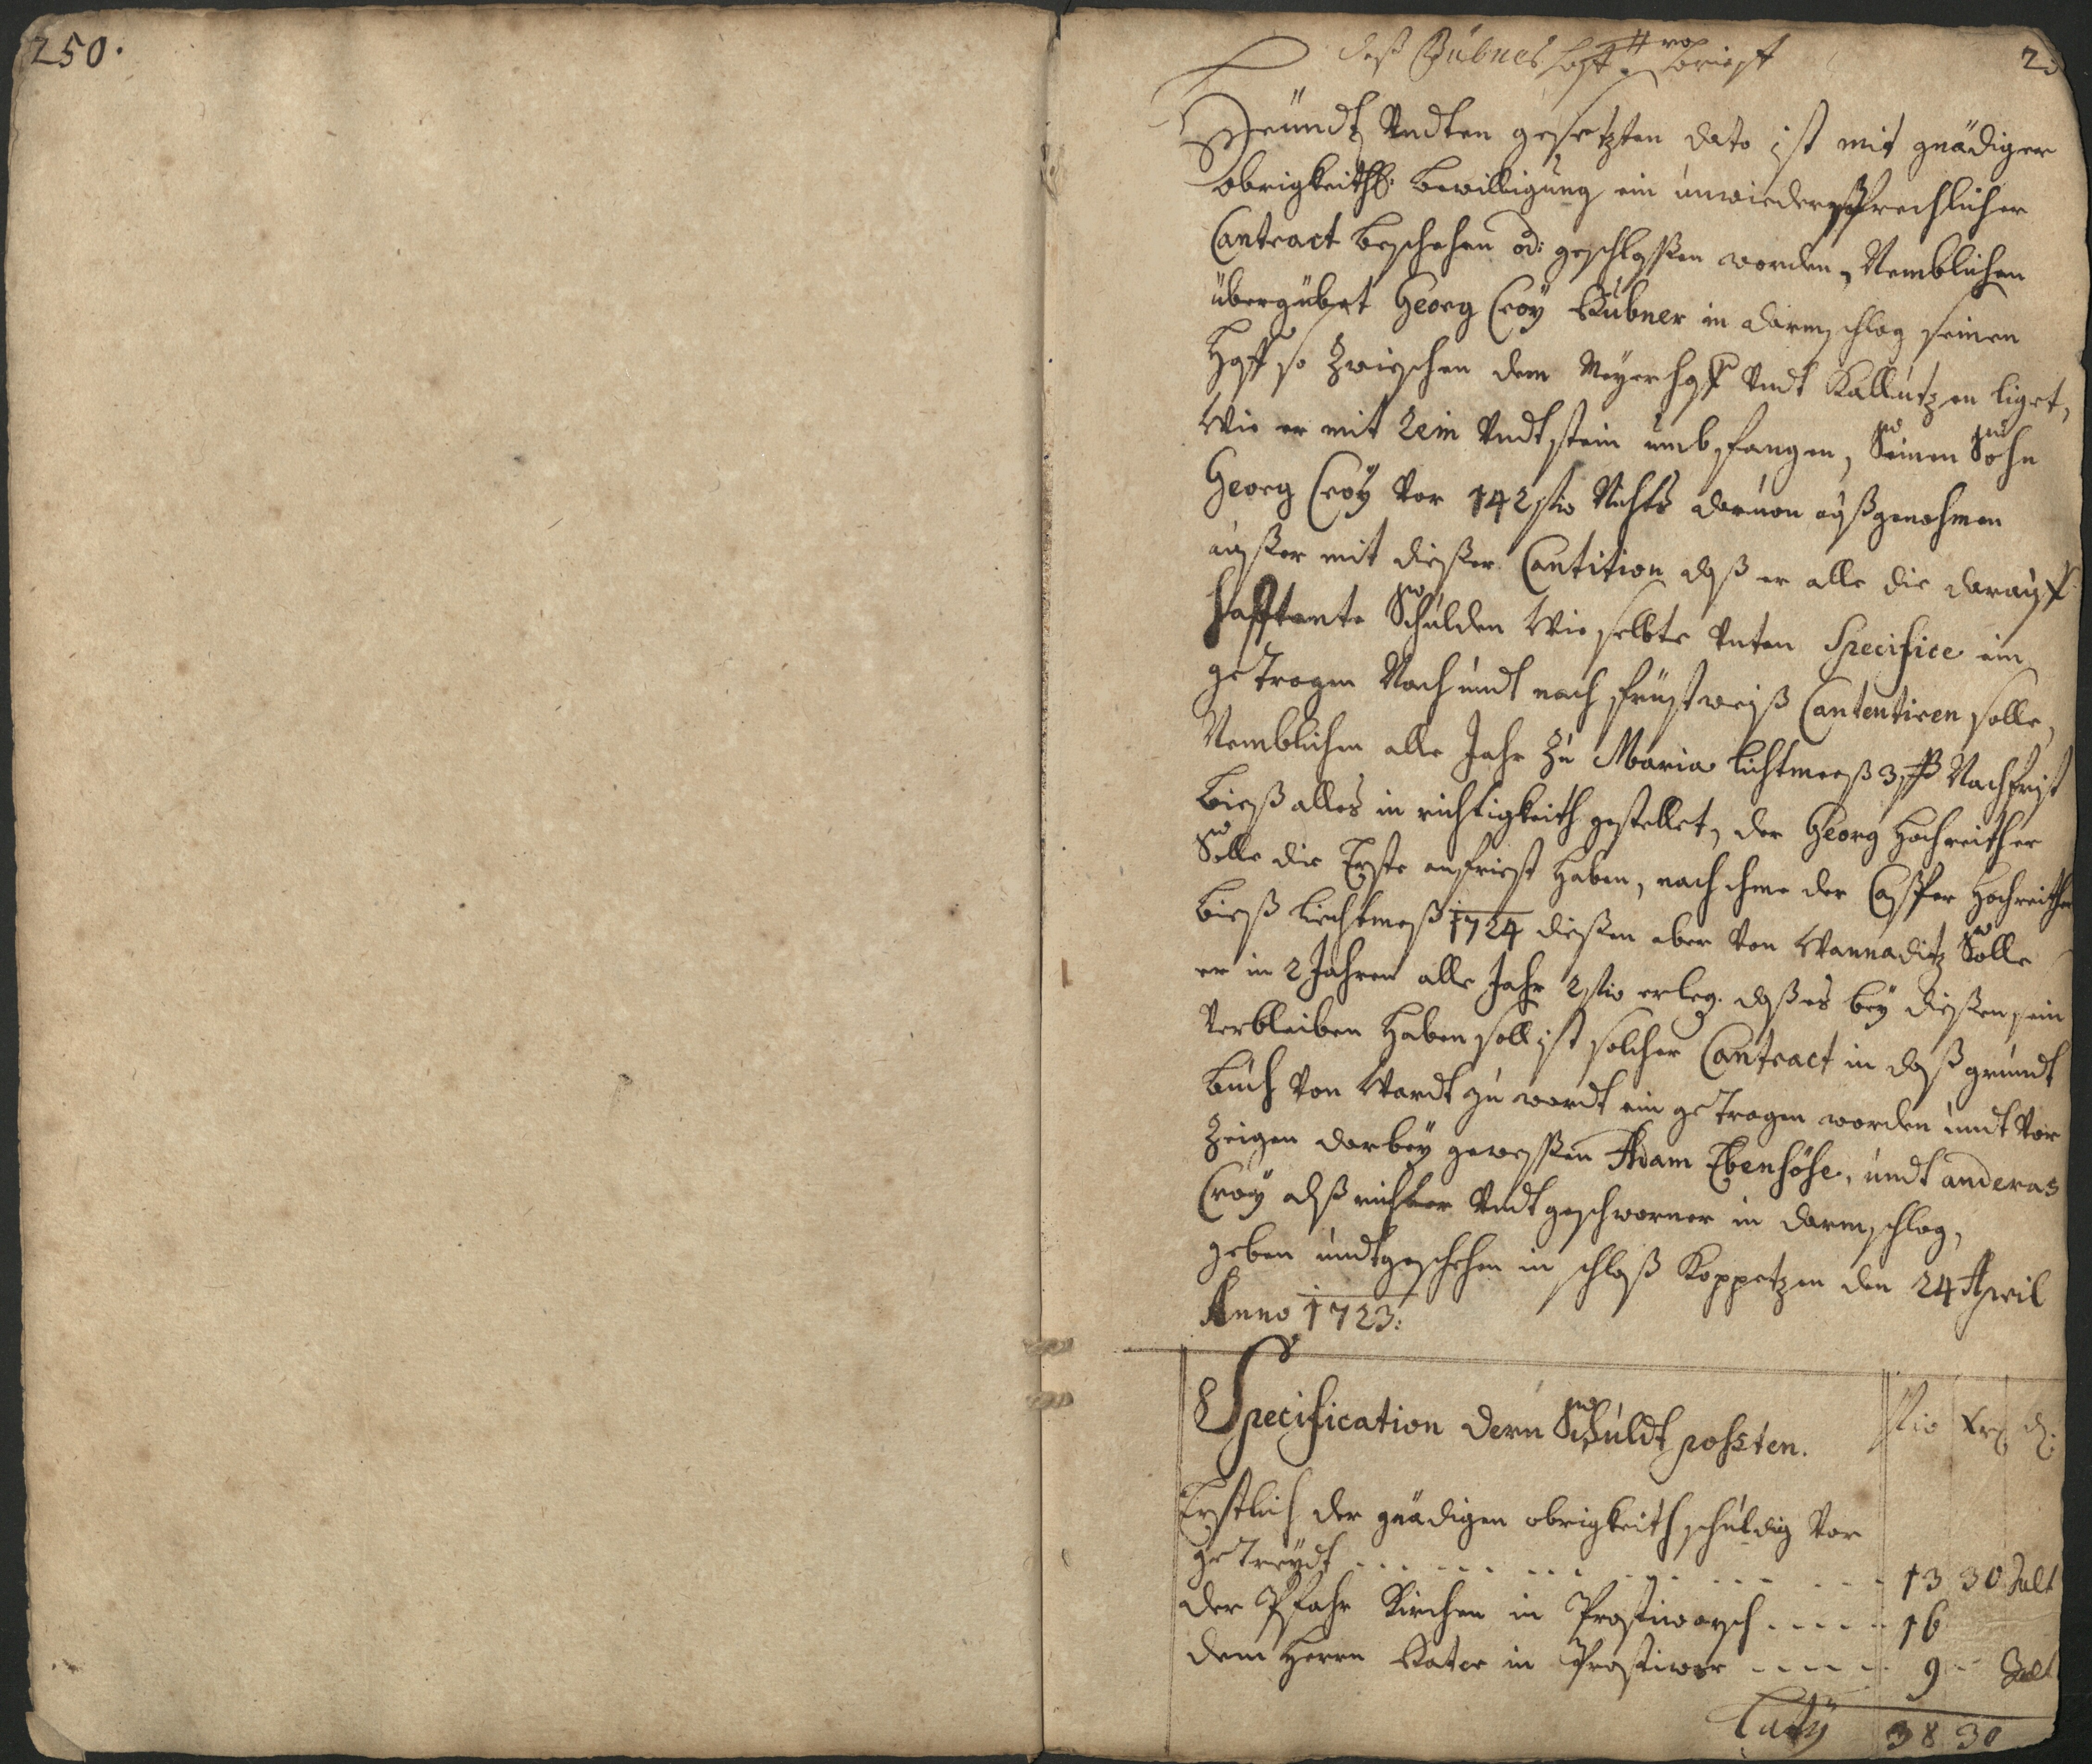 250.
deß Bübnes
Heundt Undten gesetzten dato ist mit gnädiger
obrigkeithl: bewilligung ein unwiedersprechlicher
Contract beschehen od: geschlossen worden, Nemblichen
übergübet Georg Croy Bübner in darmschlag seinen
Hoff so zwischen dem Meyerhoff Undt Kallutzen liget,
Wie er mit Reim Undt stein umbfangen, Seinen Sohn
Georg Croy Vor 142 Nichts daruon außgenohmen
außer mit dießer Contition daß er alle die darauff
hafftente Schulden Wie selbte Unten Specifice ein
getragen Nach undt nach früstweiß Contentiren solle,
Nemblichen alle Jahr zu Maria lichtmeeß 3 ß Nachfrist
bieß alles in richtigkeith gestellet, der Georg Hochreither
Solle die Erste anfriest haben, nach ihme der Casper Hochreither
bieß liechtmeß 1724 dießen aber Von Wannaditz Solle
er in 2 Jahren alle Jahr 2 erleg. daß es bey dießen sein
Verbleiben haben soll ist solcher Contract in daß grundt
buch Von Wardt zu wordt ein getragen worden undt Vor
Zeigen darbey geweßen Adam Ebenhöhe, undt anderas
Croy alß richter Undt geschworner in darmschlag,
geben undt geschehen in schloß Koppetzen den 24 April
Anno 1723:
Specification dern Schuldt possten.
Erstlich der gnädigen obrigkeith schuldig Vor
getreydt - - - 13 30
der Pfahr Kirchen in Prostiworsch - - - - 16
dem Herrn Pater in Prostiwor - - - - - 9 -
Laty 38 30